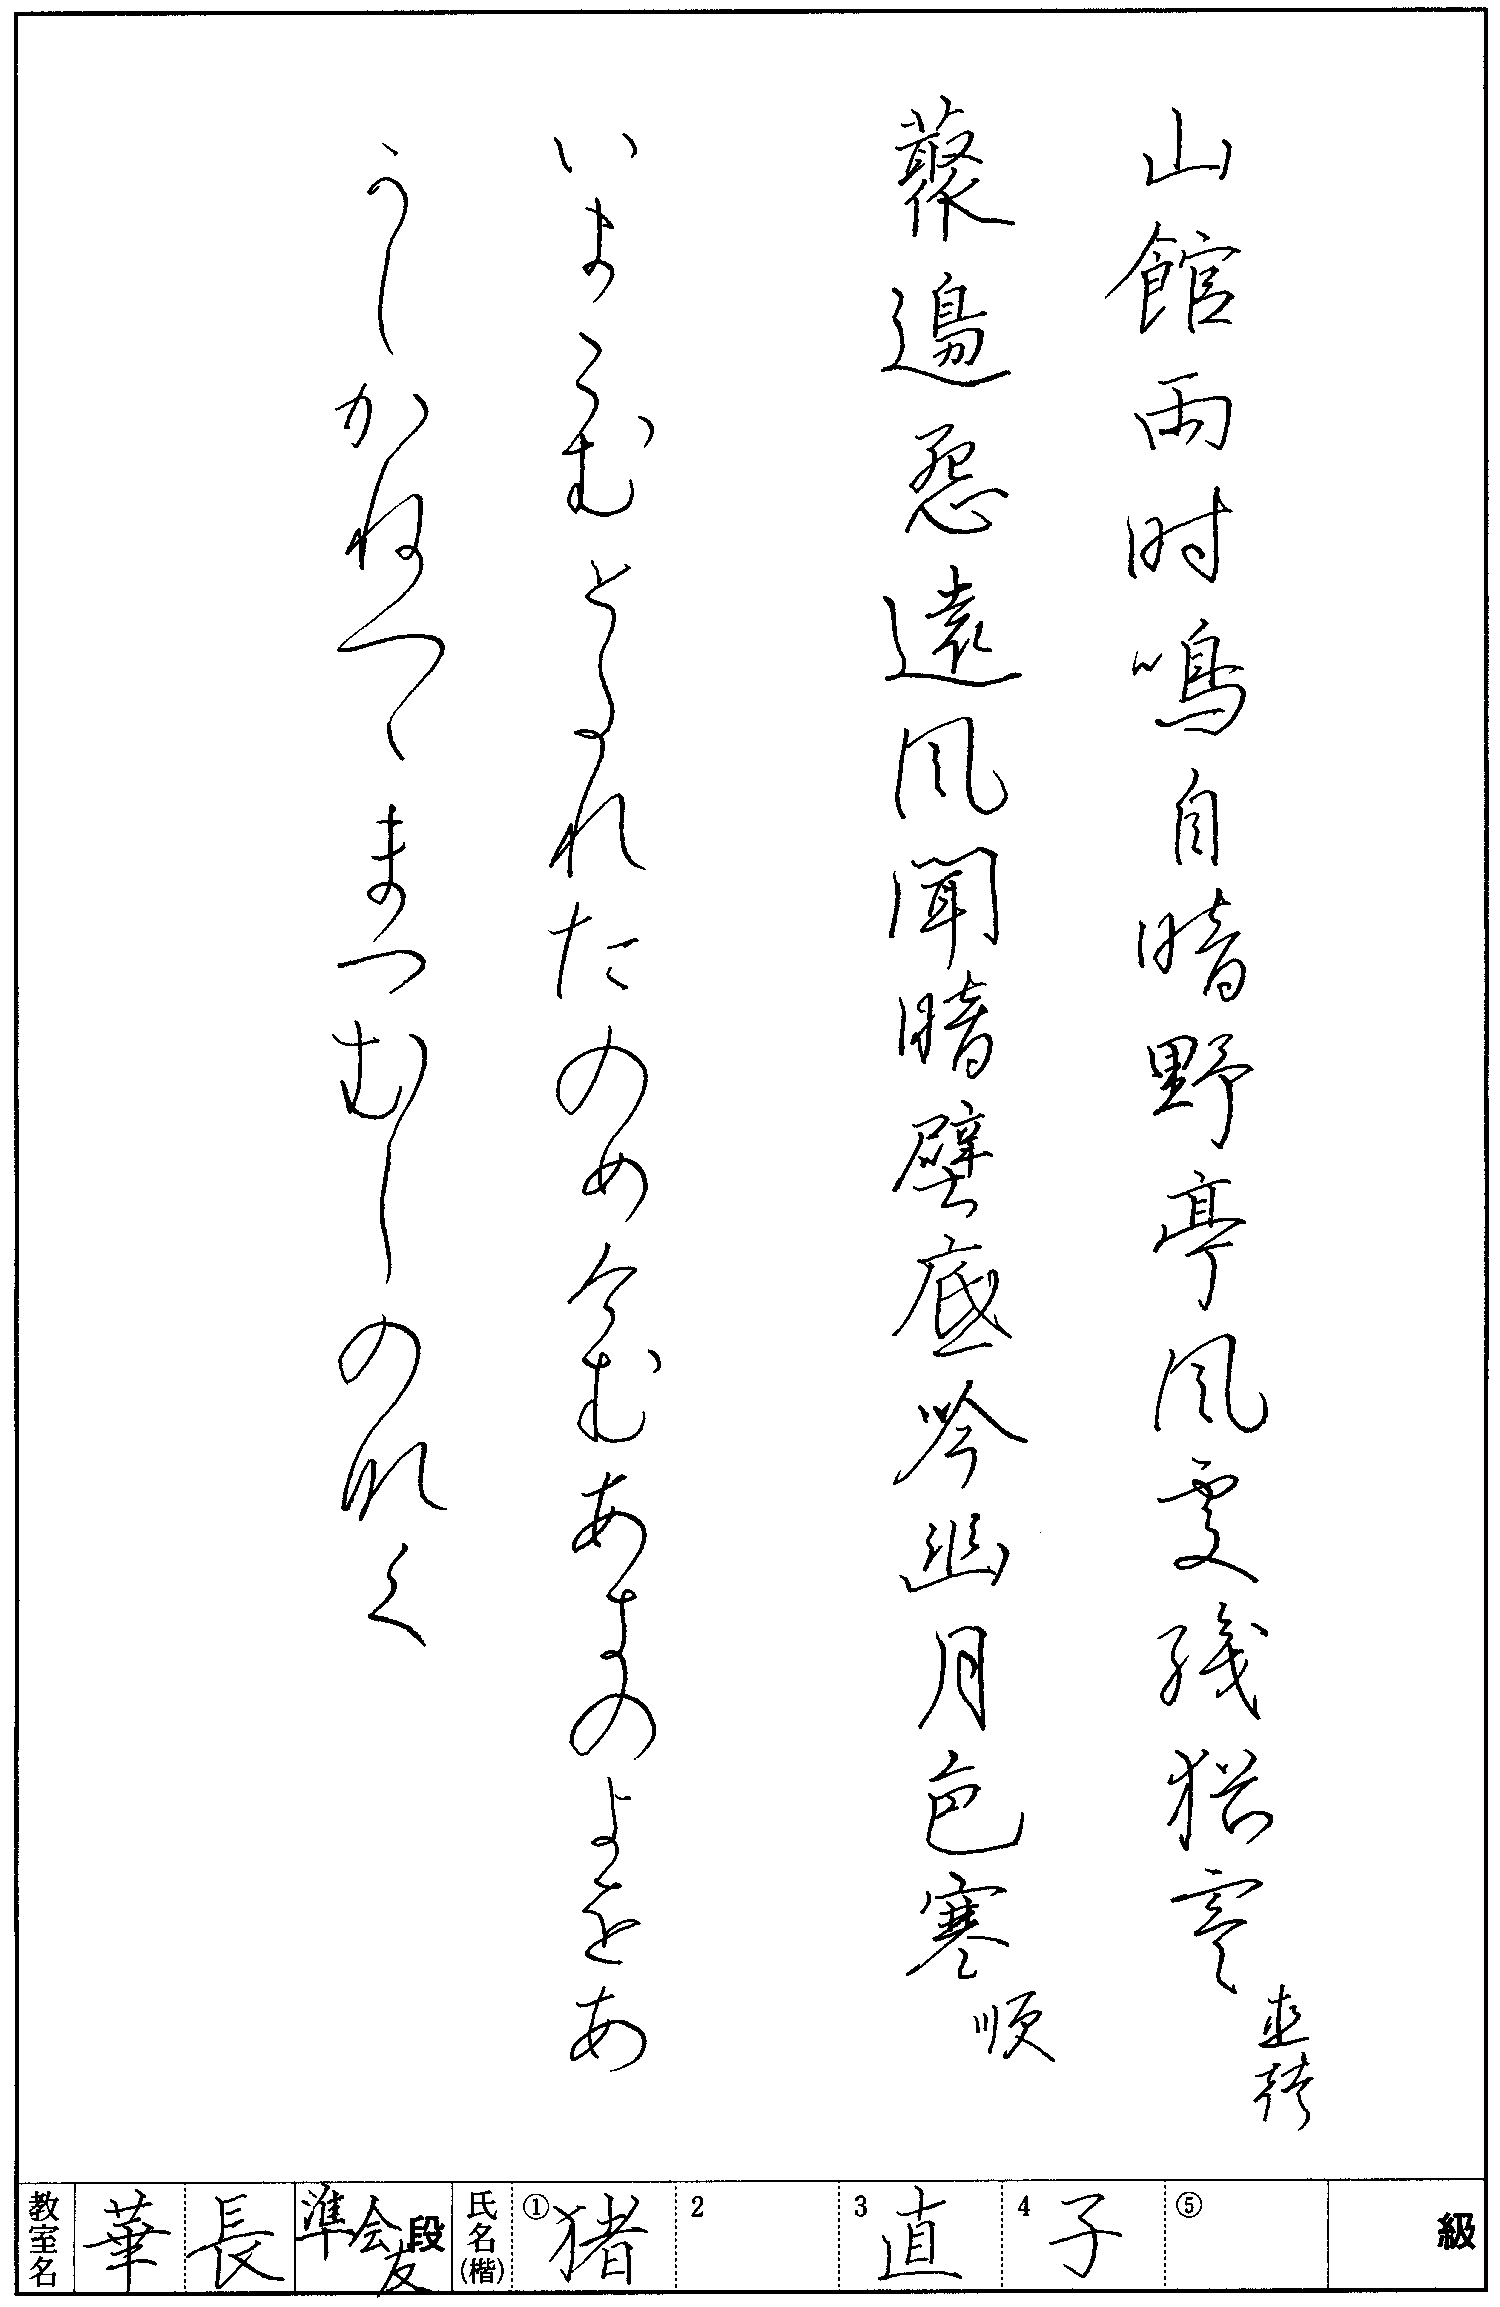 山館雨時鳴自暗野亭風處織猶寒 直幹
藂邊怨遠風聞暗壁底吟幽月色寒 順
いまこむとたれたのめけむあきのよをあ
かしかねつゝまつむしのなく
教室名 華長 準会友 段 氏名(楷) ①猪 2 3直 4子 ⑤ 級